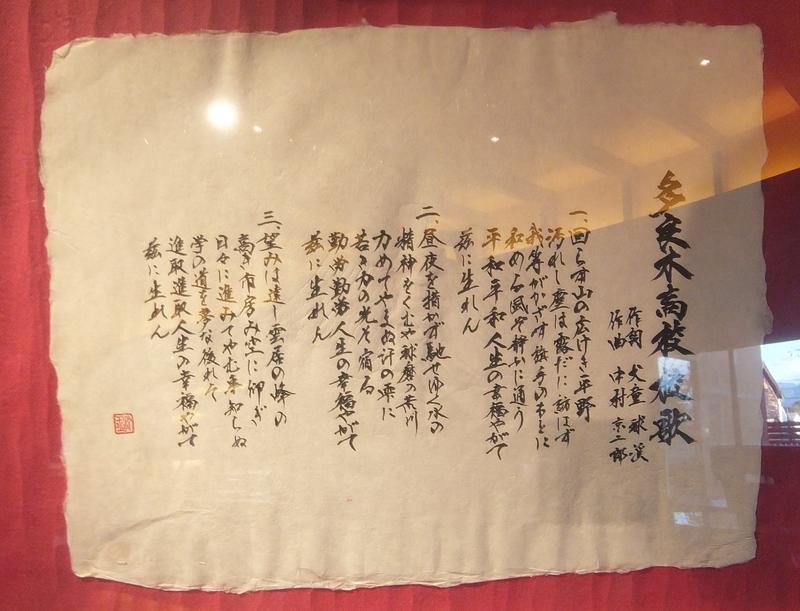 多良木高校校歌
作詞 犬童球渓
作曲 中村京二郎
一、回らす山の広けき平野
汚れし塵は露だに訪はず
我等がかざす旗手の下をば
和める風や静かに通う
平和平和人生の幸福やがて
茲に生れん
二、昼夜を措かず馳せゆく水の
精神をくむや球磨の某川
力めてやまぬ汗の雫に
若き力の光ぞ宿る
勤労勤労人生の幸福やがて
茲に生れん
三、望みは遠し雲居の峰の
高き有房み空に仰ぎ
日々に進みてやむ事知らぬ
学の道を夢な後れそ
進取進取人生の幸福やがて
茲に生れん